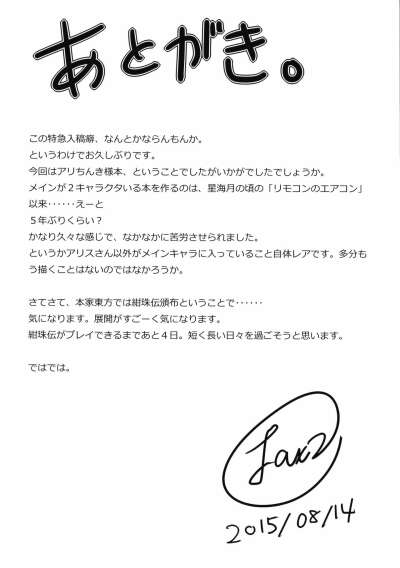 あとがき。
この特急入稿癖、なんとかならんもんか。
というわけでお久しぶりです。
今回はアリちんき様本、ということでしたがいかがでしたでしょうか。
メインが２キャラクタいる本を作るのは、星海月の頃の「リモコンのエアコン」
以来‥‥‥えーと
５年ぶりくらい？
かなり久々な感じで、なかなかに苦労させられました。
というかアリスさん以外がメインキャラに入っていること自体レアです。多分も
う描くことはないのではなかろうか。
さてさて、本家東方では紺珠伝頒布ということで‥‥‥
気になります。展開がすごーく気になります。
紺珠伝がプレイできるまであと４日。短く長い日々を過ごそうと思います。
ではでは。
2015/08/14